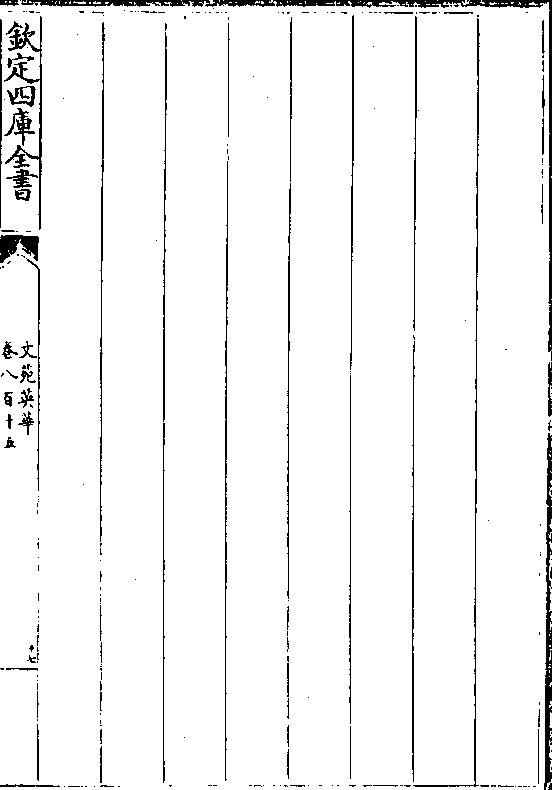 欽定四庫全書
文苑英華
卷八百十五
十七